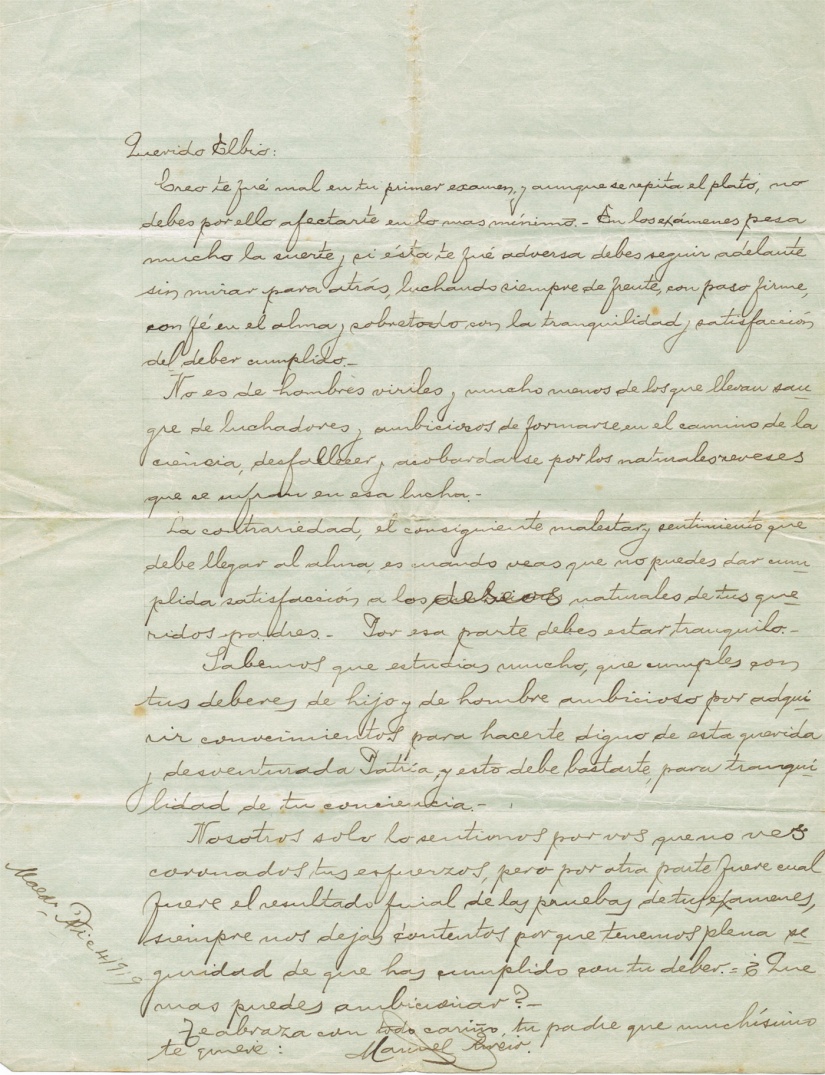 Querido Elbio:
Creo te fué mal en tu primer examen, y aunque se repita el plato, no
debes por ello afectarte en lo mas mínimo.- En los exámenes pesa
mucho la suerte y si ésta te fué adversa debes seguir adelante
sin mirar para atrás, luchando siempre de frente, con paso firme,
con fé en el alma y sobretodo, con la tranquilidad y satisfacción
del deber cumplido.-
No es de hombres viriles y mucho menos de los que llevan san-
gre de luchadores y ambiciosos de formarse en el camino de la
ciencia, desfallecer y acobardarse por los naturales reveses
que se sufran en esa lucha.-
La contrariedad, el consiguiente malestar y sentimiento que
debe llegar al alma, es cuando veas que no puedes dar cum-
plida satisfacción a los deseos naturales de tus que-
ridos padres.- Por esa parte debes estar tranquilo.-
Sabemos que estudias mucho, que cumples con
tus deberes de hijo y de hombre ambicioso por adqui-
rir conocimientos para hacerte digno de esta querida
y desventurada Patria, y esto debe bastarte, para tranqui-
lidad de tu conciencia.-
Nosotros solo lo sentimos por vos que no ves
coronados tus esfuerzos, pero por otra parte fuere cual
fuere el resultado final de las pruebas de tus exámenes,
siempre nos dejas contentos por que tenemos plena se-
guridad de que has cumplido con tu deber.- ¿Que
mas puedes ambicionar?-
Te abraza con todo cariño, tu padre que muchísimo
te quiere: Manuel
Dic 4/919